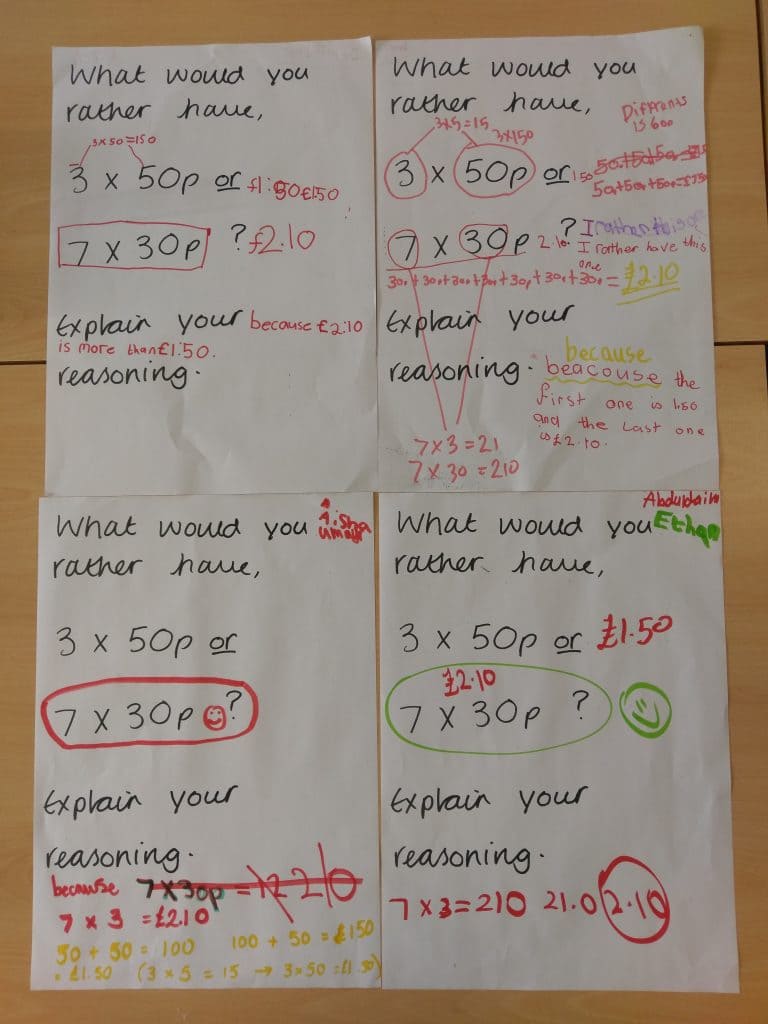 What would you
rather have,
3x50=150
3 x 50p or £1.50 £1.50
7 x 30p ? £2.10
Explain your because £2:10
is more than £1:50.
reasoning.
What would you
rather have,
Differents
is 600
3x5=15
3x150
3 x 50p or 150
50p+50p+50p=£150
7 x 30p ? 2.10. I rather have this
one
30p+30p+30p+30p+30p+30p+30p = £2.10
Explain your
because
reasoning. beacouse the
first one is 1.50
and the last one
is £2.10.
7x3=21
7x30=210
What would you Aisha
umayr
rather have,
3 x 50p or
7 x 30p ?
Explain your
reasoning.
because 7x30p =
7 x 3 = £210
50 + 50 = 100 100 + 50 = £150
= £1.50 (3 x 5 = 15 → 3x50 = £1.50)
Abduldaim
What would you Ethan
rather have,
3 x 50p or £1.50
£2.10
7 x 30p ?
Explain your
reasoning.
7x3=210 21.0 2.10